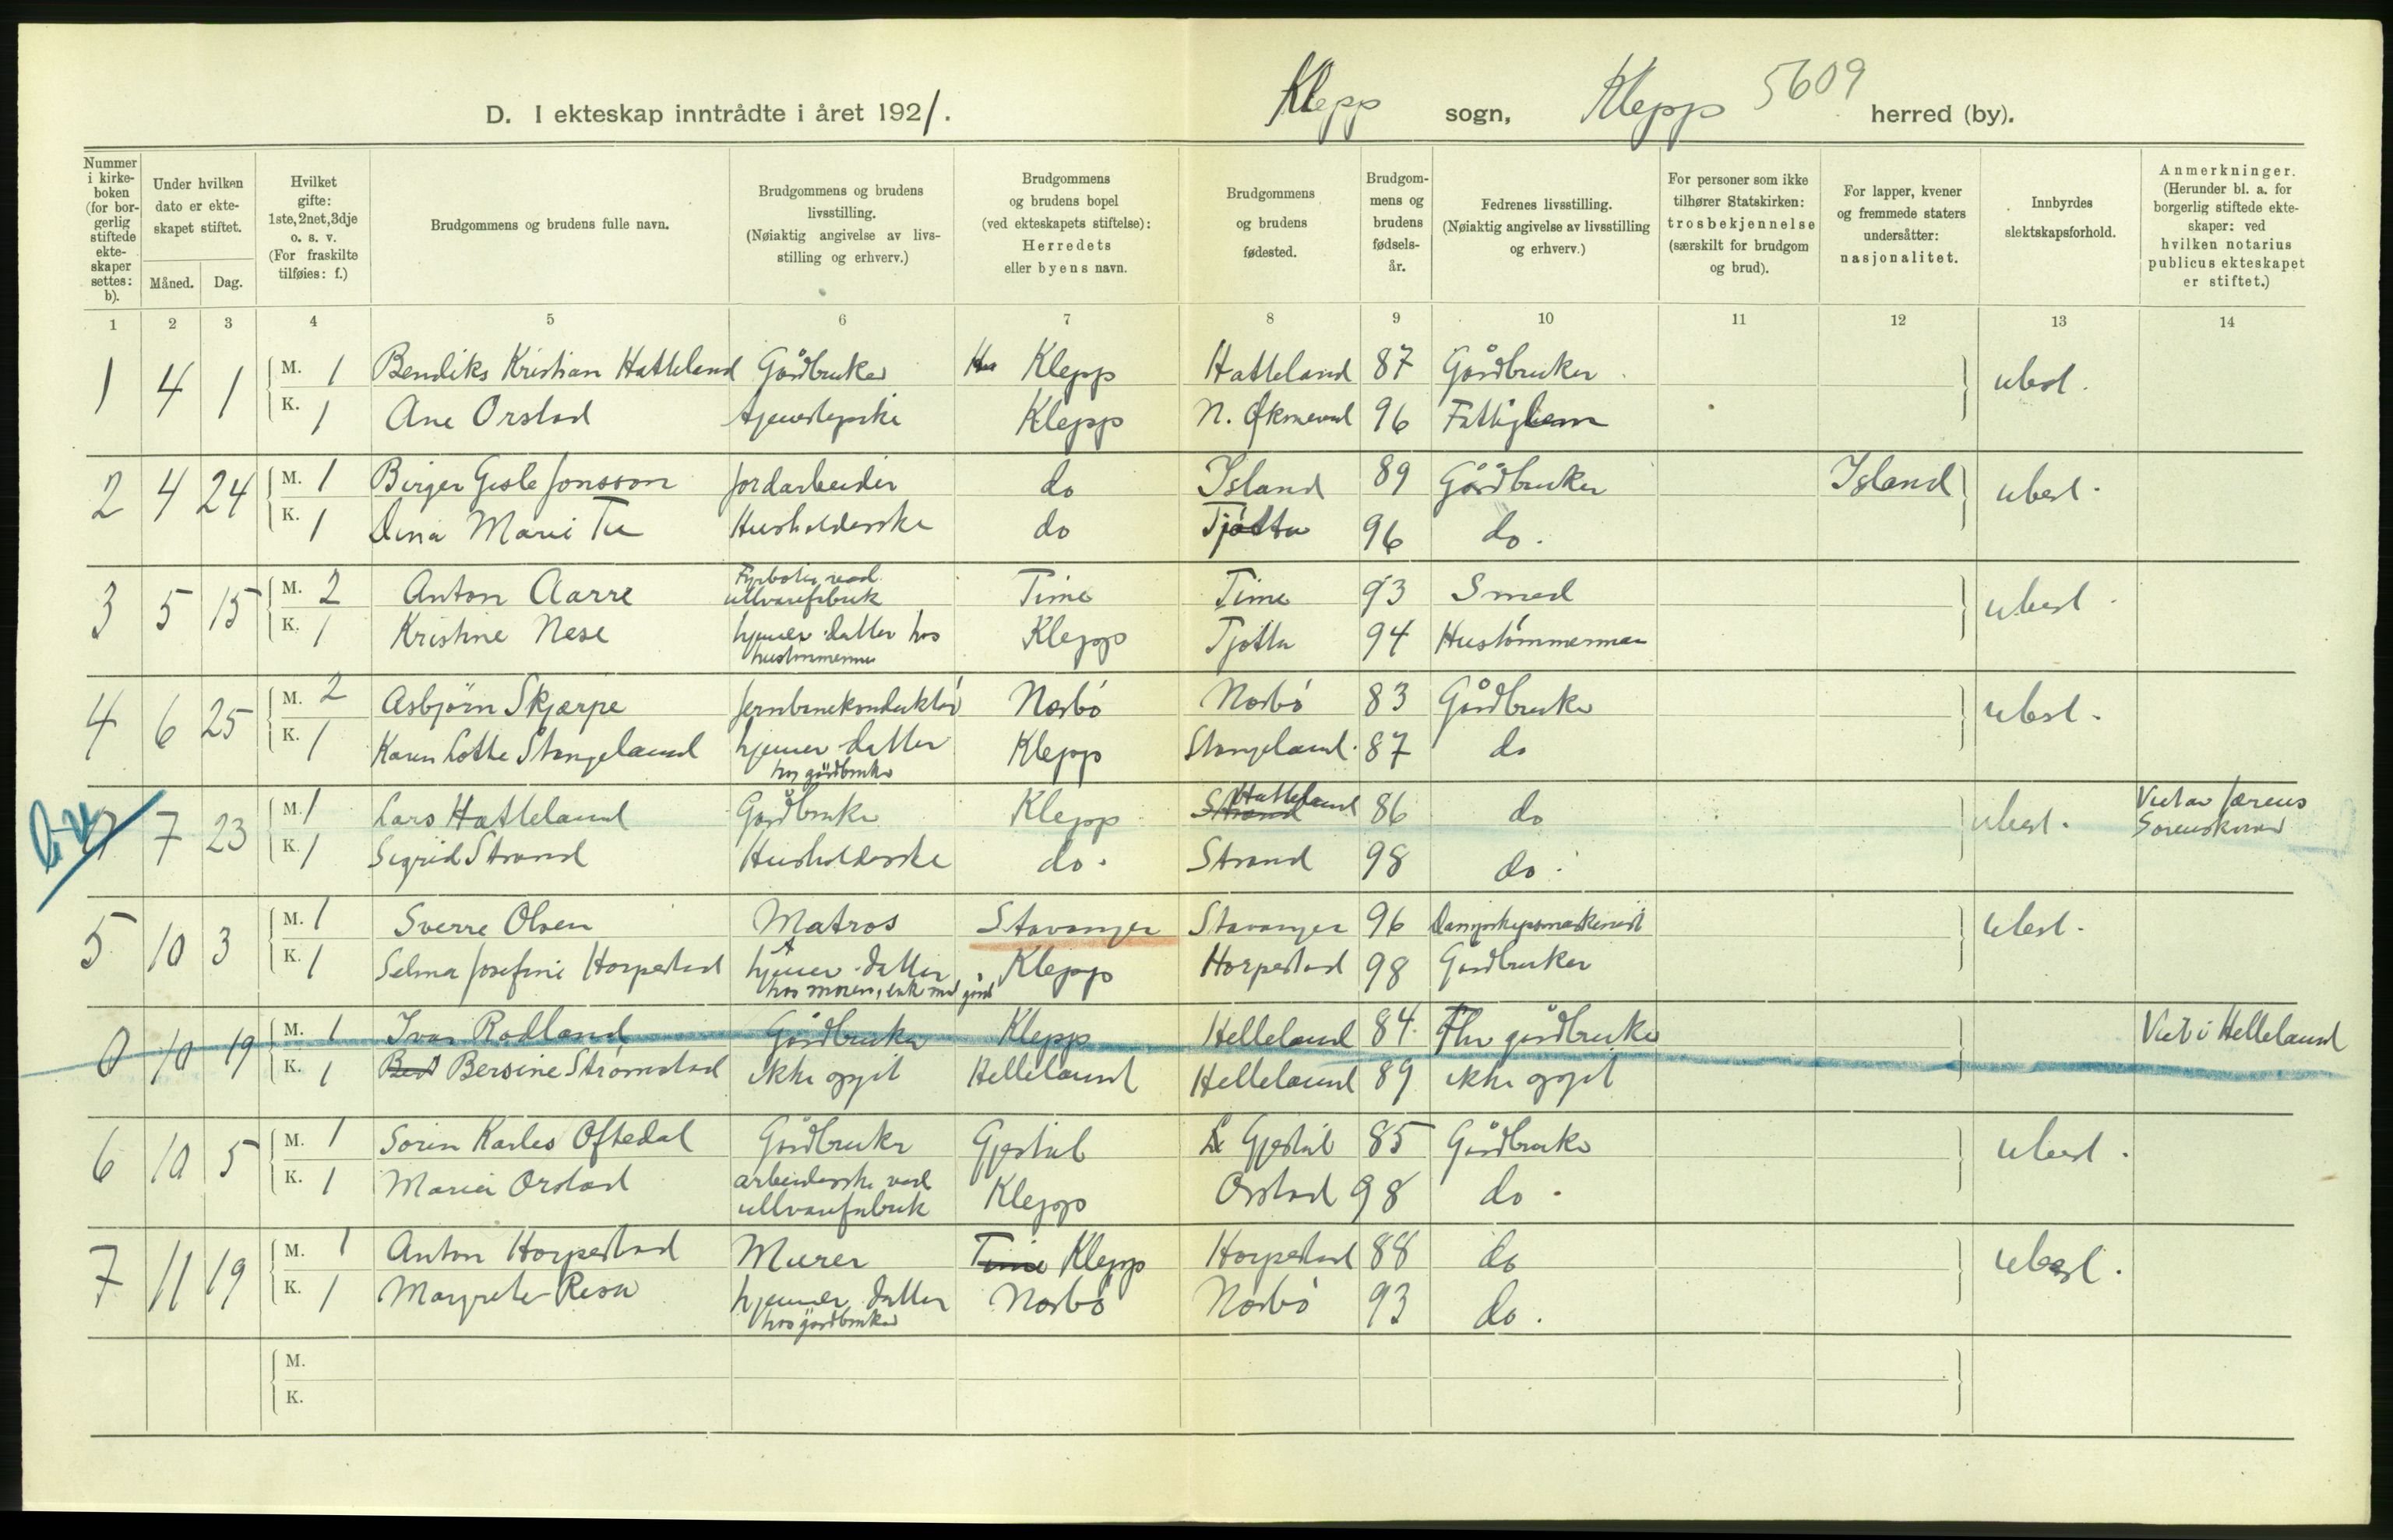 D. I ekteskap inntrådte i året 1921.
Klepp sogn, Klepp 5609 herred (by).
Nummer i kirkeboken (for borgerlig stiftede ekteskaper settes: b).
Under hvilken dato er ekteskapet stiftet.
Måned. Dag.
Hvilket gifte: 1ste, 2net, 3dje o. s. v. (For fraskilte tilføies: f.)
Brudgommens og brudens fulle navn.
Brudgommens og brudens livsstilling. (Nøiaktig angivelse av livsstilling og erhverv.)
Brudgommens og brudens bopel (ved ekteskapets stiftelse): Herredets eller byens navn.
Brudgommens og brudens fødested.
Brudgommens og brudens fødselsår.
Fedrenes livsstilling. (Nøiaktig angivelse av livsstilling og erhverv.)
For personer som ikke tilhører Statskirken: trosbekjennelse (særskilt for brudgom og brud).
For lapper, kvener og fremmede staters undersåtter: nasjonalitet.
Innbyrdes slektskapsforhold.
Anmerkninger. (Herunder bl. a. for borgerlig stiftede ekteskaper: ved hvilken notarius publicus ekteskapet er stiftet.)
1 2 3 4 5 6 7 8 9 10 11 12 13 14
1 4 1 M. 1 Bendiks Kristian Hatteland Gårdbruker Klepp Hatteland 87 Gårdbruker ubesl.
K. 1 Ane Orstad tjenestepike Klepp N. Øksnevad 96 Fattiglem
2 4 24 M. 1 Birger Gisle Jonsson Jordarbeider do Island 89 Gårdbruker Island ubesl.
K. 1 Dina Marie Tu Husholderske do Tjøtta 96 do.
3 5 15 M. 2 Anton Aarre Fyrbøter ved ullvarefabrik Time Time 93 Smed ubesl.
K. 1 Kristine Nese hjemmev. datter hos hustømmermann Klepp Tjøtta 94 Hustømmermann
4 6 25 M. 2 Asbjörn Skjærpe Jernbanekonduktör Nærbö Nærbö 83 Gårdbruker ubesl.
K. 1 Karen Lothe Stangeland hjemmev. datter hos gårdbruker Klepp Stangeland 87 do
7 23 M. 1 Lars Hatteland Gårdbruker Klepp Strand Hatteland 86 do ubesl. Viet av Jærens Sorenskriver
K. 1 Sigrid Strand Husholderske do. Strand 98 do.
5 10 3 M. 1 Sverre Olsen Matros Stavanger Stavanger 96 Dampskipsmaskinist ubesl.
K. 1 Selma Josefine Horpestad hjemmev. datter hos moren, enke med gård Klepp Horpestad 98 Gårdbruker
0 10 19 M. 1 Ivar Rodland Gårdbruker Klepp Helleland 84 Fhv gårdbruker Viet i Helleland
K. 1 Bersine Strømstad ikke opgit Helleland Helleland 89 ikke opgit
6 10 5 M. 1 Sören Karles Oftedal Gårdbruker Gjestal Gjestal 85 Gårdbruker ubesl.
K. 1 Maria Orstad arbeiderske ved ullvarefabrik Klepp Orstad 98 do.
7 11 19 M. 1 Anton Horpestad Murer Time Klepp Horpestad 88 do ubesl.
K. 1 Margrete Risa hjemmev. datter hos gårdbruker Nærbö Nærbö 93 do.
M.
K.